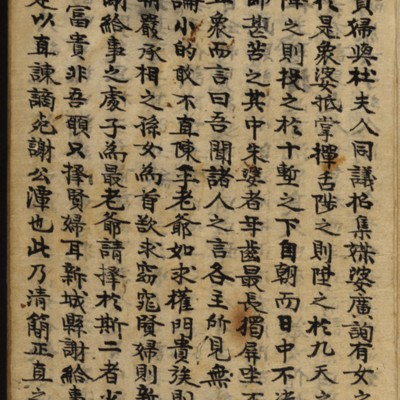 婦與杜夫人同議招集媒婆廣詢有女之
於是衆婆抵掌揮舌陟之則陞之於九天之
降之則投之於十塹之下自朝而日中不
師甚苦之其中朱婆者年齒最長獨屏坐不
衆而言曰吾聞諸人之言各主所見無
論小的敢不直陳乎老爺如求權門貴族則
朝嚴承相之孫女為首欲求窈窕賢婦則新
謝給事之處子為最老爺請擇於斯二者少
富貴非吾願又擇賢婦耳新城縣謝給事
是以直諫謫死謝公潭也此乃清簡正直之